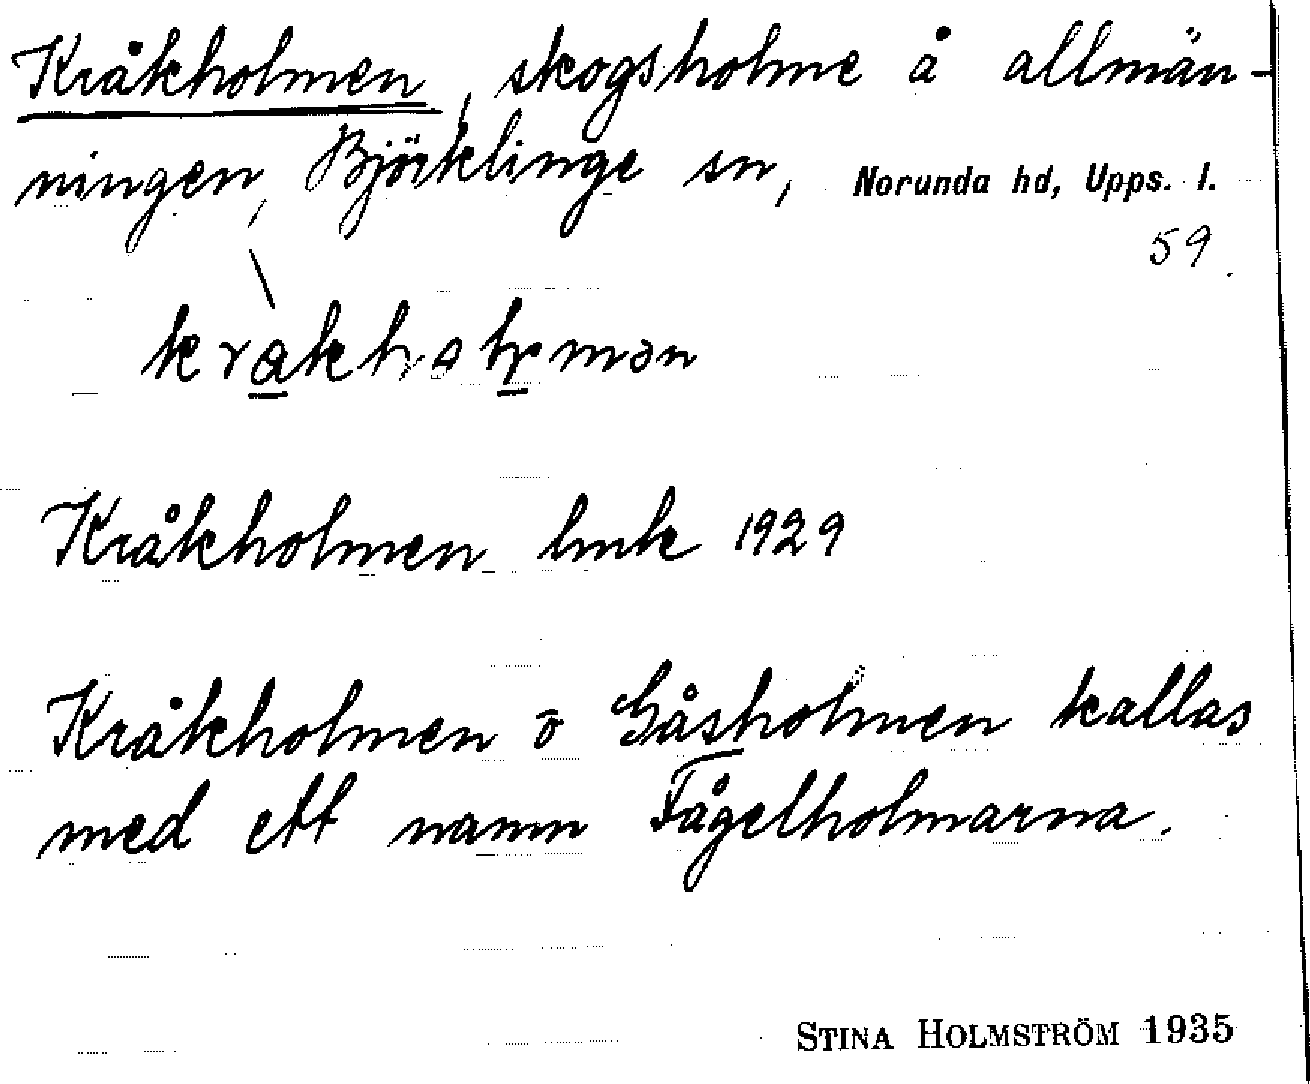 Kråkholmen, skogsholme å allmän-
ningen, Björklinge sn, Norunda hd, Upps. l.
59.
Kråkholmen hmk 1929
Kråkholmen o Gåsholmen kallas
med ett namn Fågelholmarna.
STINA HOLMSTRÖM 1935